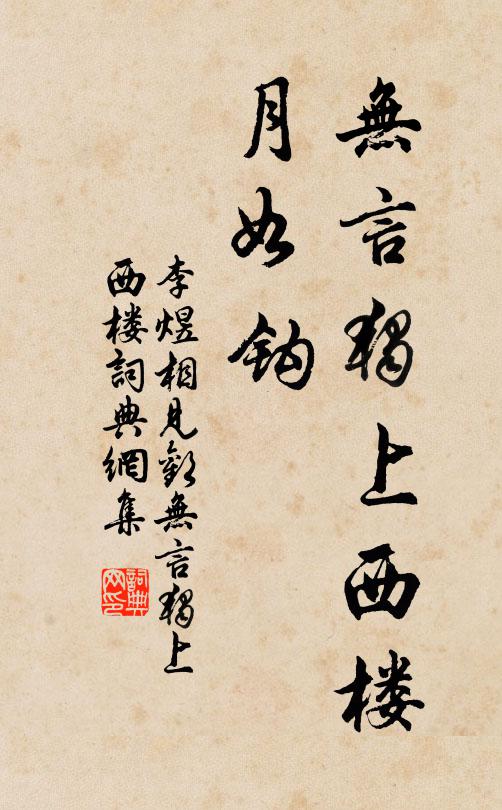 無言獨上西楼
月如鈎
李煜相見歡無言獨上
西楼詞典網集
詞典
网印